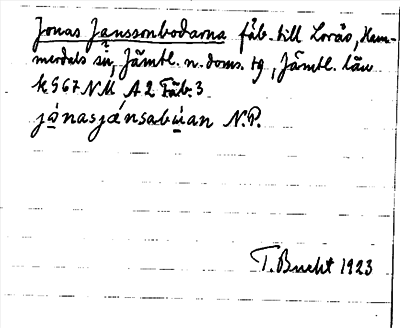 Jonas Janssonbodarna fäb. till Lorås, Ham-
merdals sn, Jämtl. n. doms. tg, Jämtl. län
k 567 NM A2 Fäb. 3
jónasjánsabùan N.P.
T. Bucht 1923